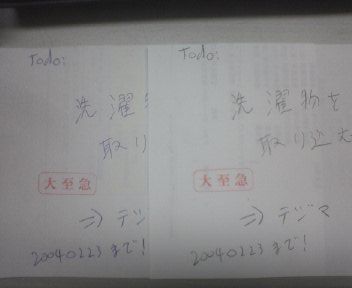 Todo:
洗濯
取り
大至急
⇒ テジ
20040223まで!
Todo:
洗濯物を
取り込む
大至急
⇒ テジマ
20040223まで!